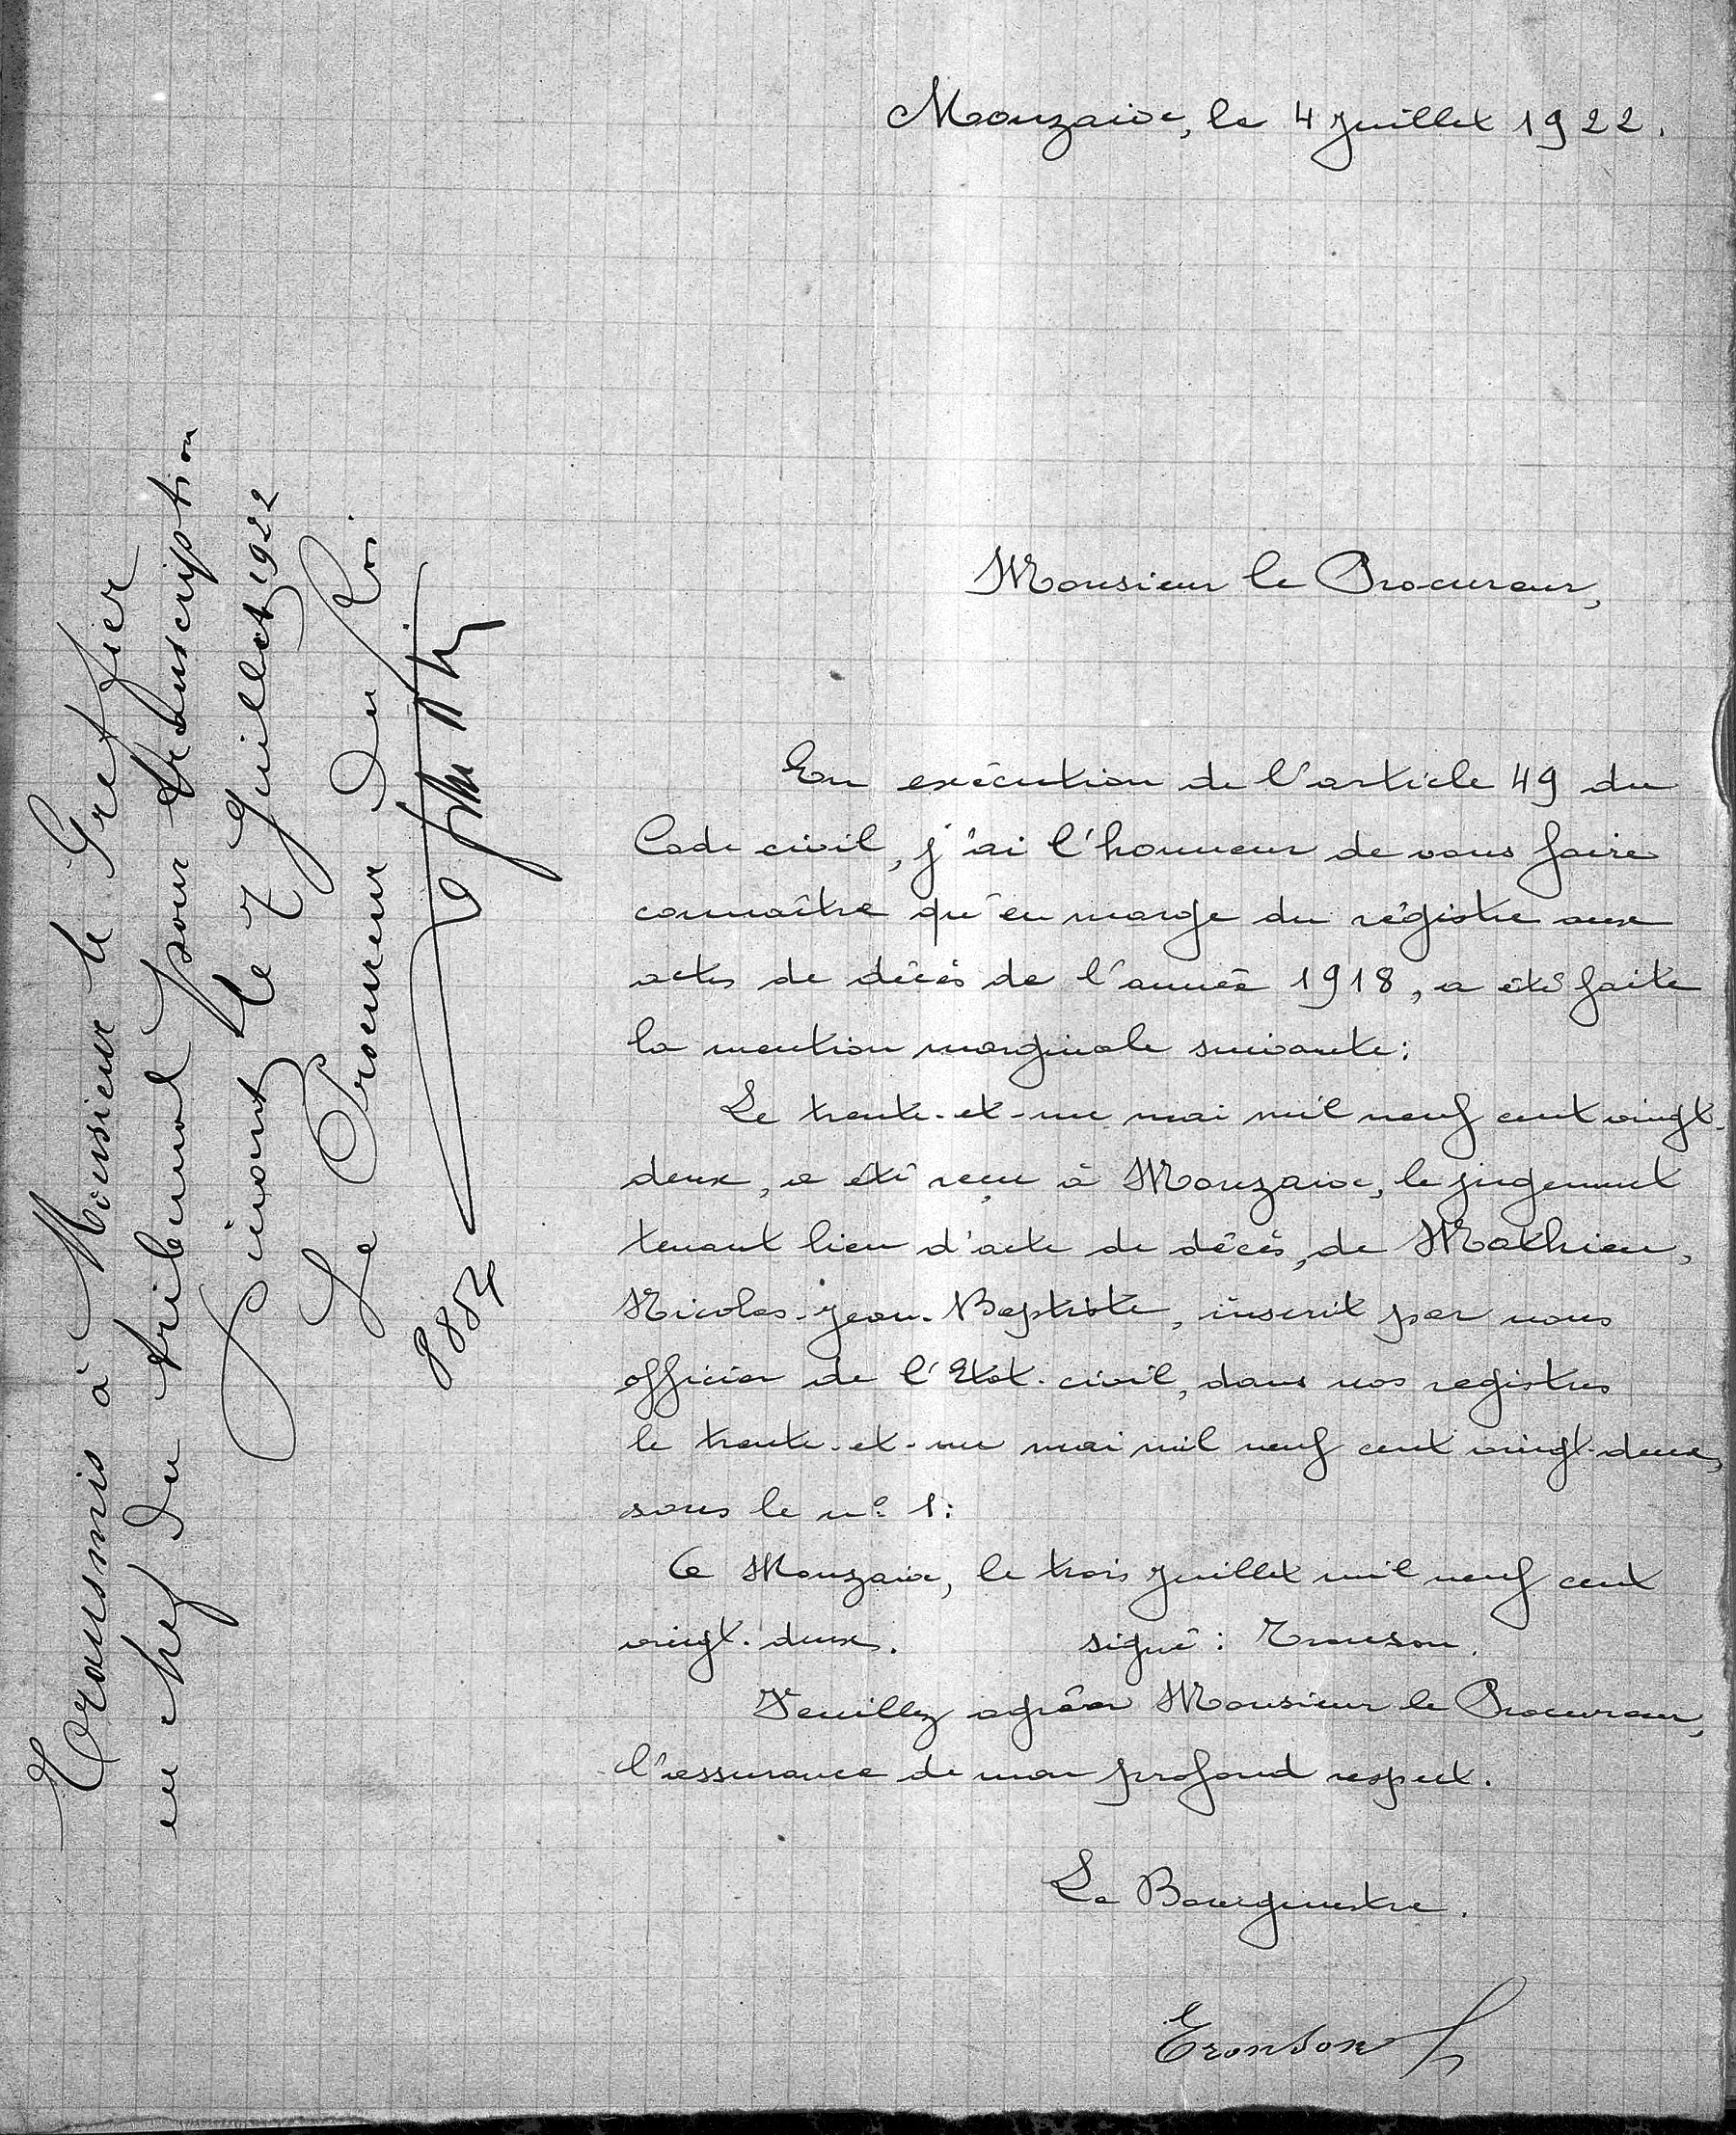 Mouzaive, le 4 juillet 1922.
Monsieur le Procureur,
En exécution de l'article 49 du
Code civil, j'ai l'honneur de vous faire
connaître qu'en marge du régistre aux
actes de décès de l'année 1918, a été faite
la mention marginale suivante:
Le trente-et-un mai mil neuf cent vingt-
deux, a été reçu à Mouzaive, le jugement
tenant lieu d'acte de décès, de Mathieu,
Nicolas-Jean-Baptiste, inscrit par nous
officier de l'Etat-civil, dans nos registres
le trente-et-un mai mil neuf cent vingt-deux,
sous le n° 1:
A Mouzaive, le trois juillet mil neuf cent
vingt-deux. signé: Tronson.
Veuillez agréer Monsieur le Procureur,
l'assurance de mon profond respect.
Le Bourgmestre.
Tronson
Transmis à Monsieur le Greffier
en chef du tribunal pour transcription
Dinant le 7 Juillet 1922
Le Procureur du Roi
8854